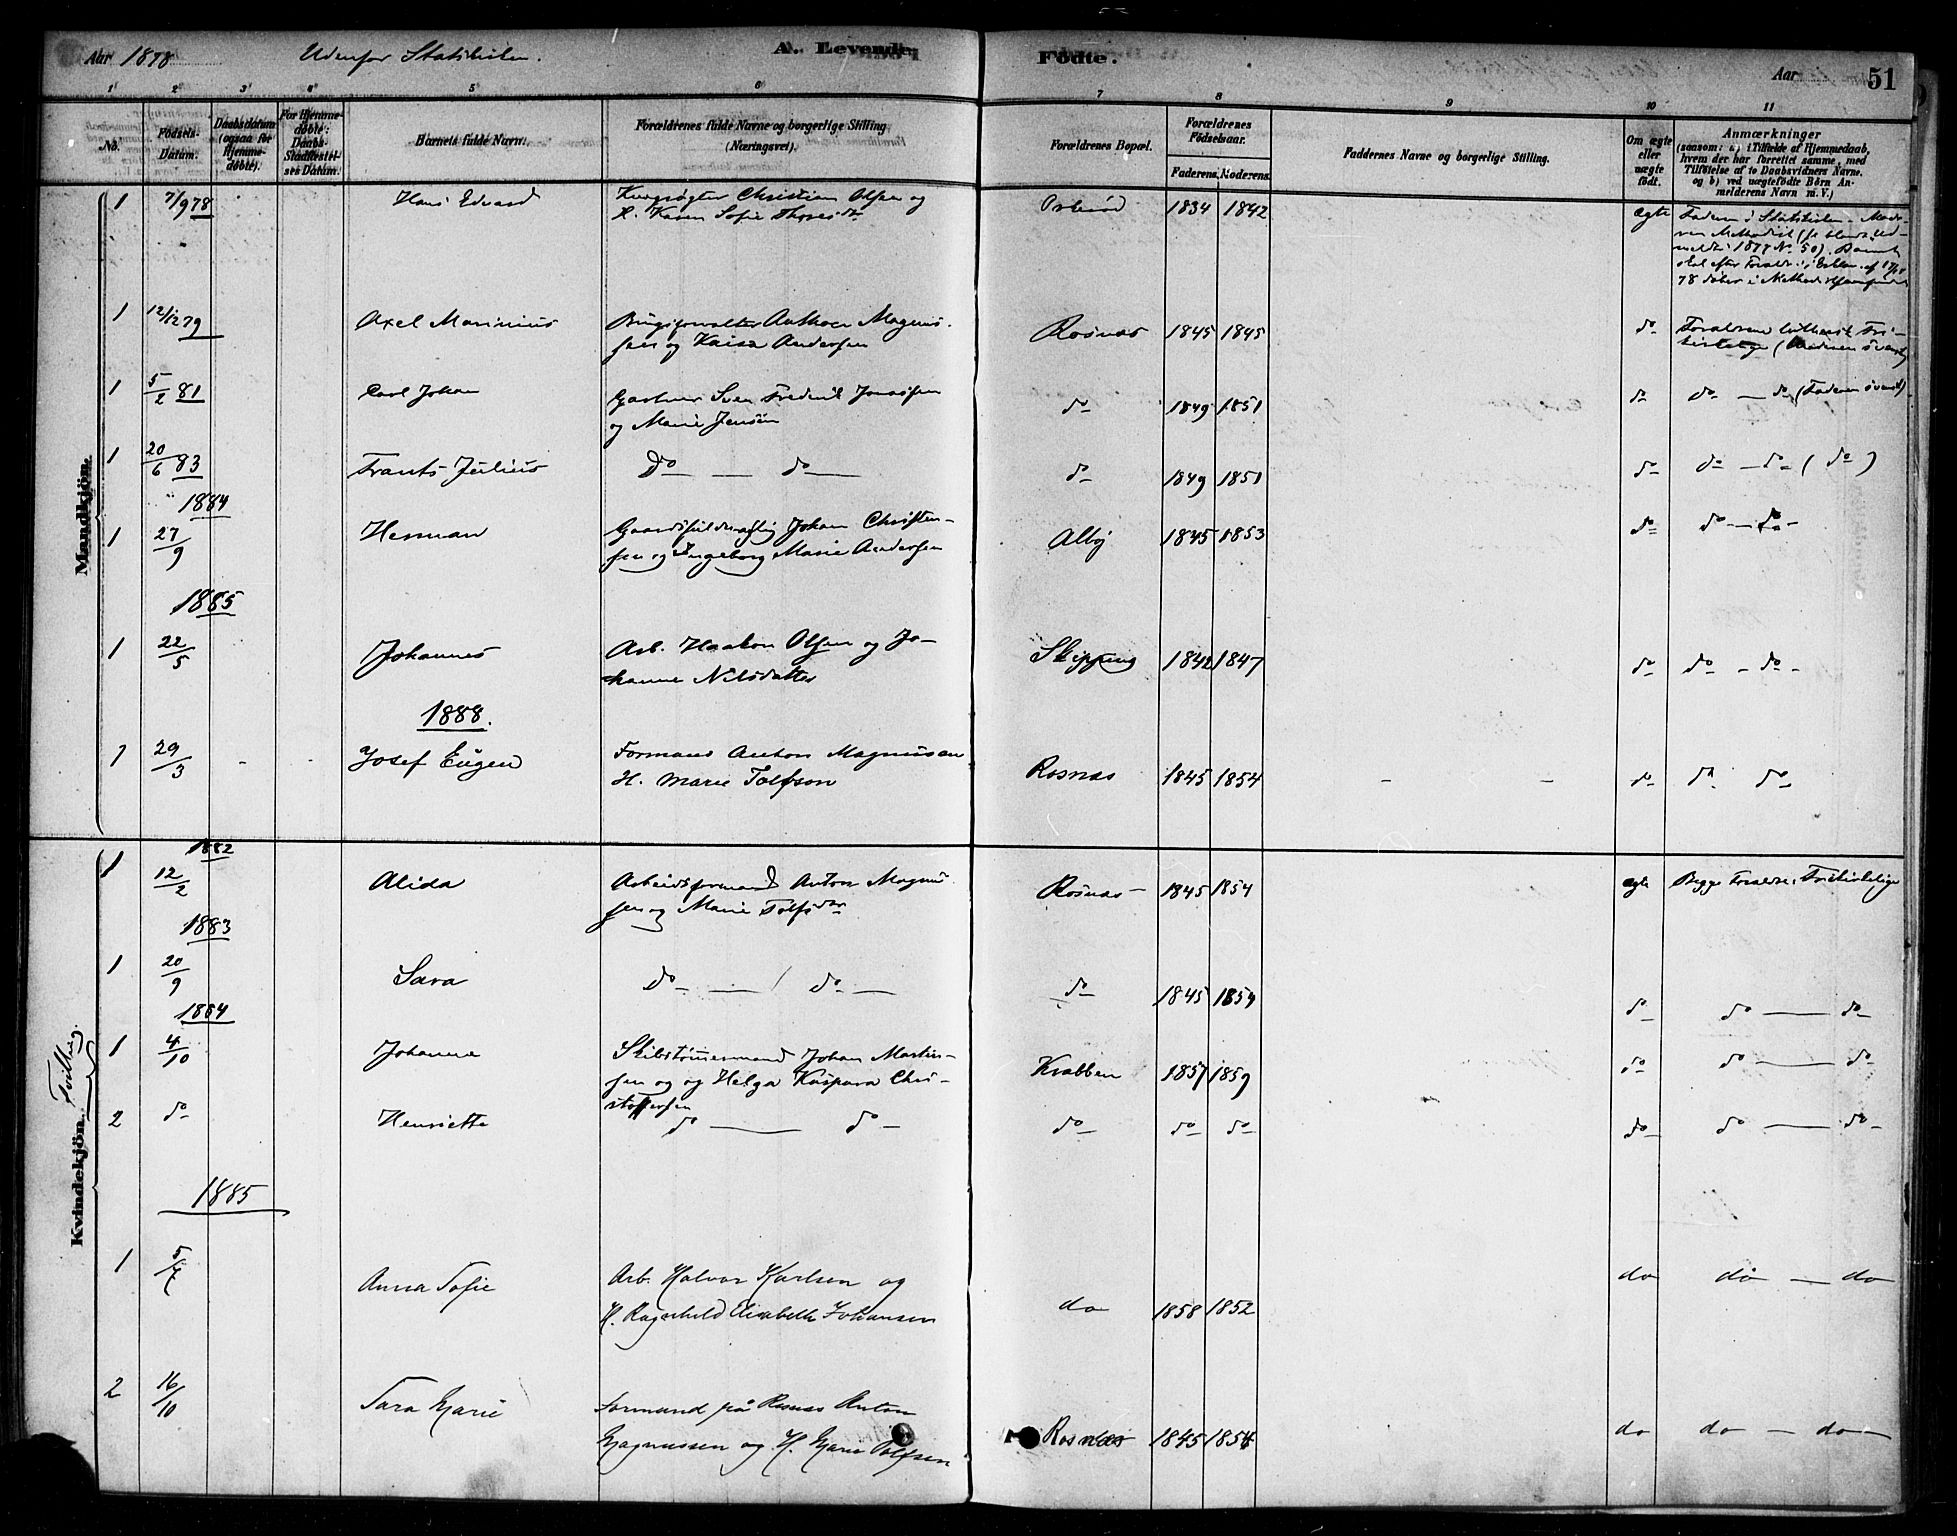 Aar 1878
Udenfor Statskirken.
A. Levende
Fødte.
Aar
51
1 2 3 4 5 6 7 8 9 10 11
No.
Fødsels-Datum.
Daabsdatum (ogsaa for Hjemme-døbte).
For Hjemme-døbte: Daabs-Stadfæstel-ses Datum.
Barnets fulde Navn.
Forældrenes fulde Navne og borgerlige Stilling (Næringsvei).
Forældrenes Bopæl.
Forældrenes Fødselsaar.
Faderens. Moderens.
Faddernes Navne og borgerlige Stilling.
Om ægte eller uægte født.
Anmærkninger
(saasom: a) i Tilfælde af Hjemmedaab, hvem der har forrettet samme, med Tilføielse af to Daabsvidners Navne, og b) ved uægtefødte Børn An-melderens Navn m. V.)
Mandkjön.
1 7/9 78 Hans Edvard Christian Olsen og
H. Karen Sofie 1834 1842 ægte Faderen i Statskirken. Mode-
ren Methodist
1 12/12 79 Axel Marinius Magnus-
sen og Kaisa Andersen Rosnæs 1845 1845 do
1 5/2 81 Carl Johan Gartner Sven Fredrik
og Marie Jensen do 1849 1851 do do — do (Faderen svensk)
1 20/6 83 Frants Julius Do — do — do 1849 1851 do do — do (do)
1884
1 27/9 Herman Johan Christen-
sen og Ingeborg Marie Andersen Alby 1845 1853 do do — do —
1885
1 22/5 Johannes Arb. Haakon Olsen og Jo-
hanne Nilsdatter Skipping 1842 1847 do do — do —
1888.
1 29/3 Josef Eugen Formand Anton Magnusen
H. Marie Tolfson Rosnæs 1845 1854 do do do
Kvindekjön.
1882
1 12/2 Alida Arbeidsformand Anton Magnus-
sen og Marie Tolfsdtr Rosnæs 1845 1854 ægte Begge Forældre Frikirkelige
1883
1 20/9 Sara do — do — do 1845 1854 do do — do
1884
Tvilling
1 4/10 Johanne Skibstømmermand Johan Martin-
sen og og Helga Kaspara Chri-
stoffersen Krabben 1857 1859 do do — do
2 do Henriette do — do — do do do do do — do
1885
1 5/7 Anna Sofie Arb. Halvor Karlsen og
H. Ragnhild Elisabeth Johansen do 1858 1852 do do — do
2 16/10 Sara Marie Formand på Rosnæs Anton
Magnussen og H. Marie Tolfsen Rosnæs 1845 1854 do do — do —